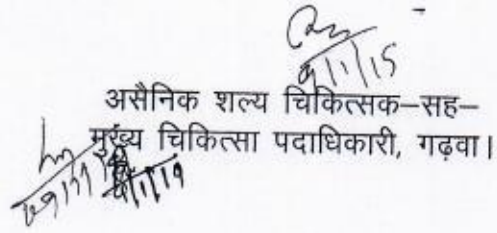 9/1/15
असैनिक शल्य चिकित्सक–सह–
मुख्य चिकित्सा पदाधिकारी, गढ़वा।